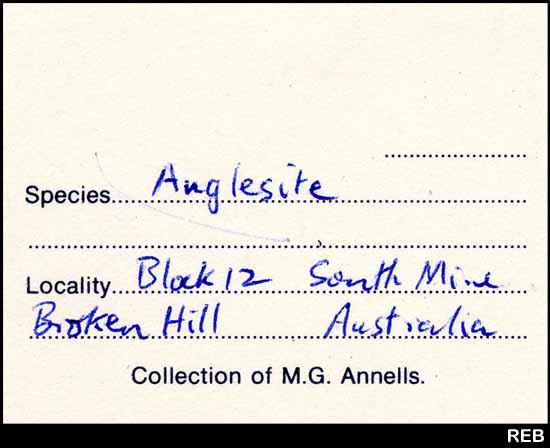 Species Anglesite
Locality Block 12 South Mine
Broken Hill Australia
Collection of M.G. Annells.
REB